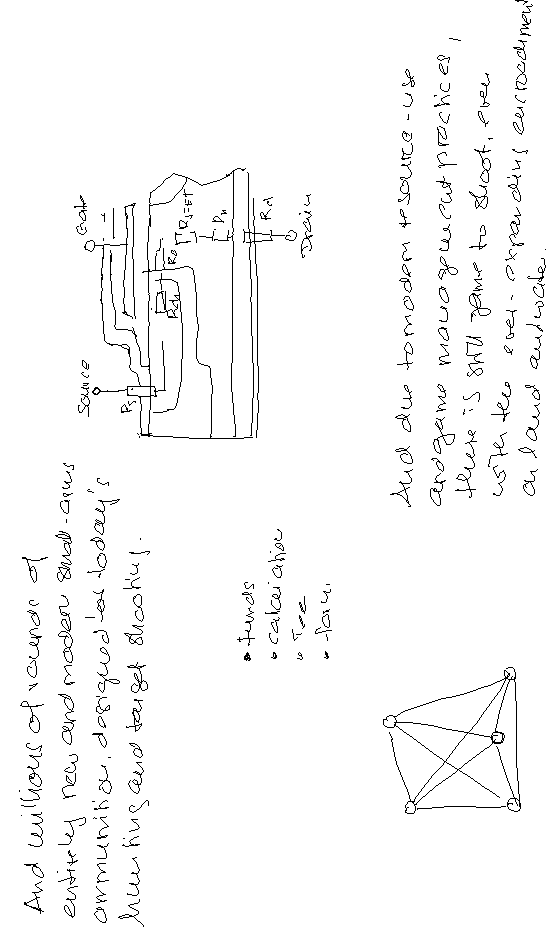 And millions of rounds of
entirely new and modern small-arms
ammunition, designed for today's
hunting and target shooting.
Source
Gate
Rs
Rch
Ra
RJFET
Rn
Rd
Drain
• funds
• calciation
• Tee
And due to modern resource-use
and game management practices,
there is still game to shoot, even
with the ever-expanding encroachment
on land and water.